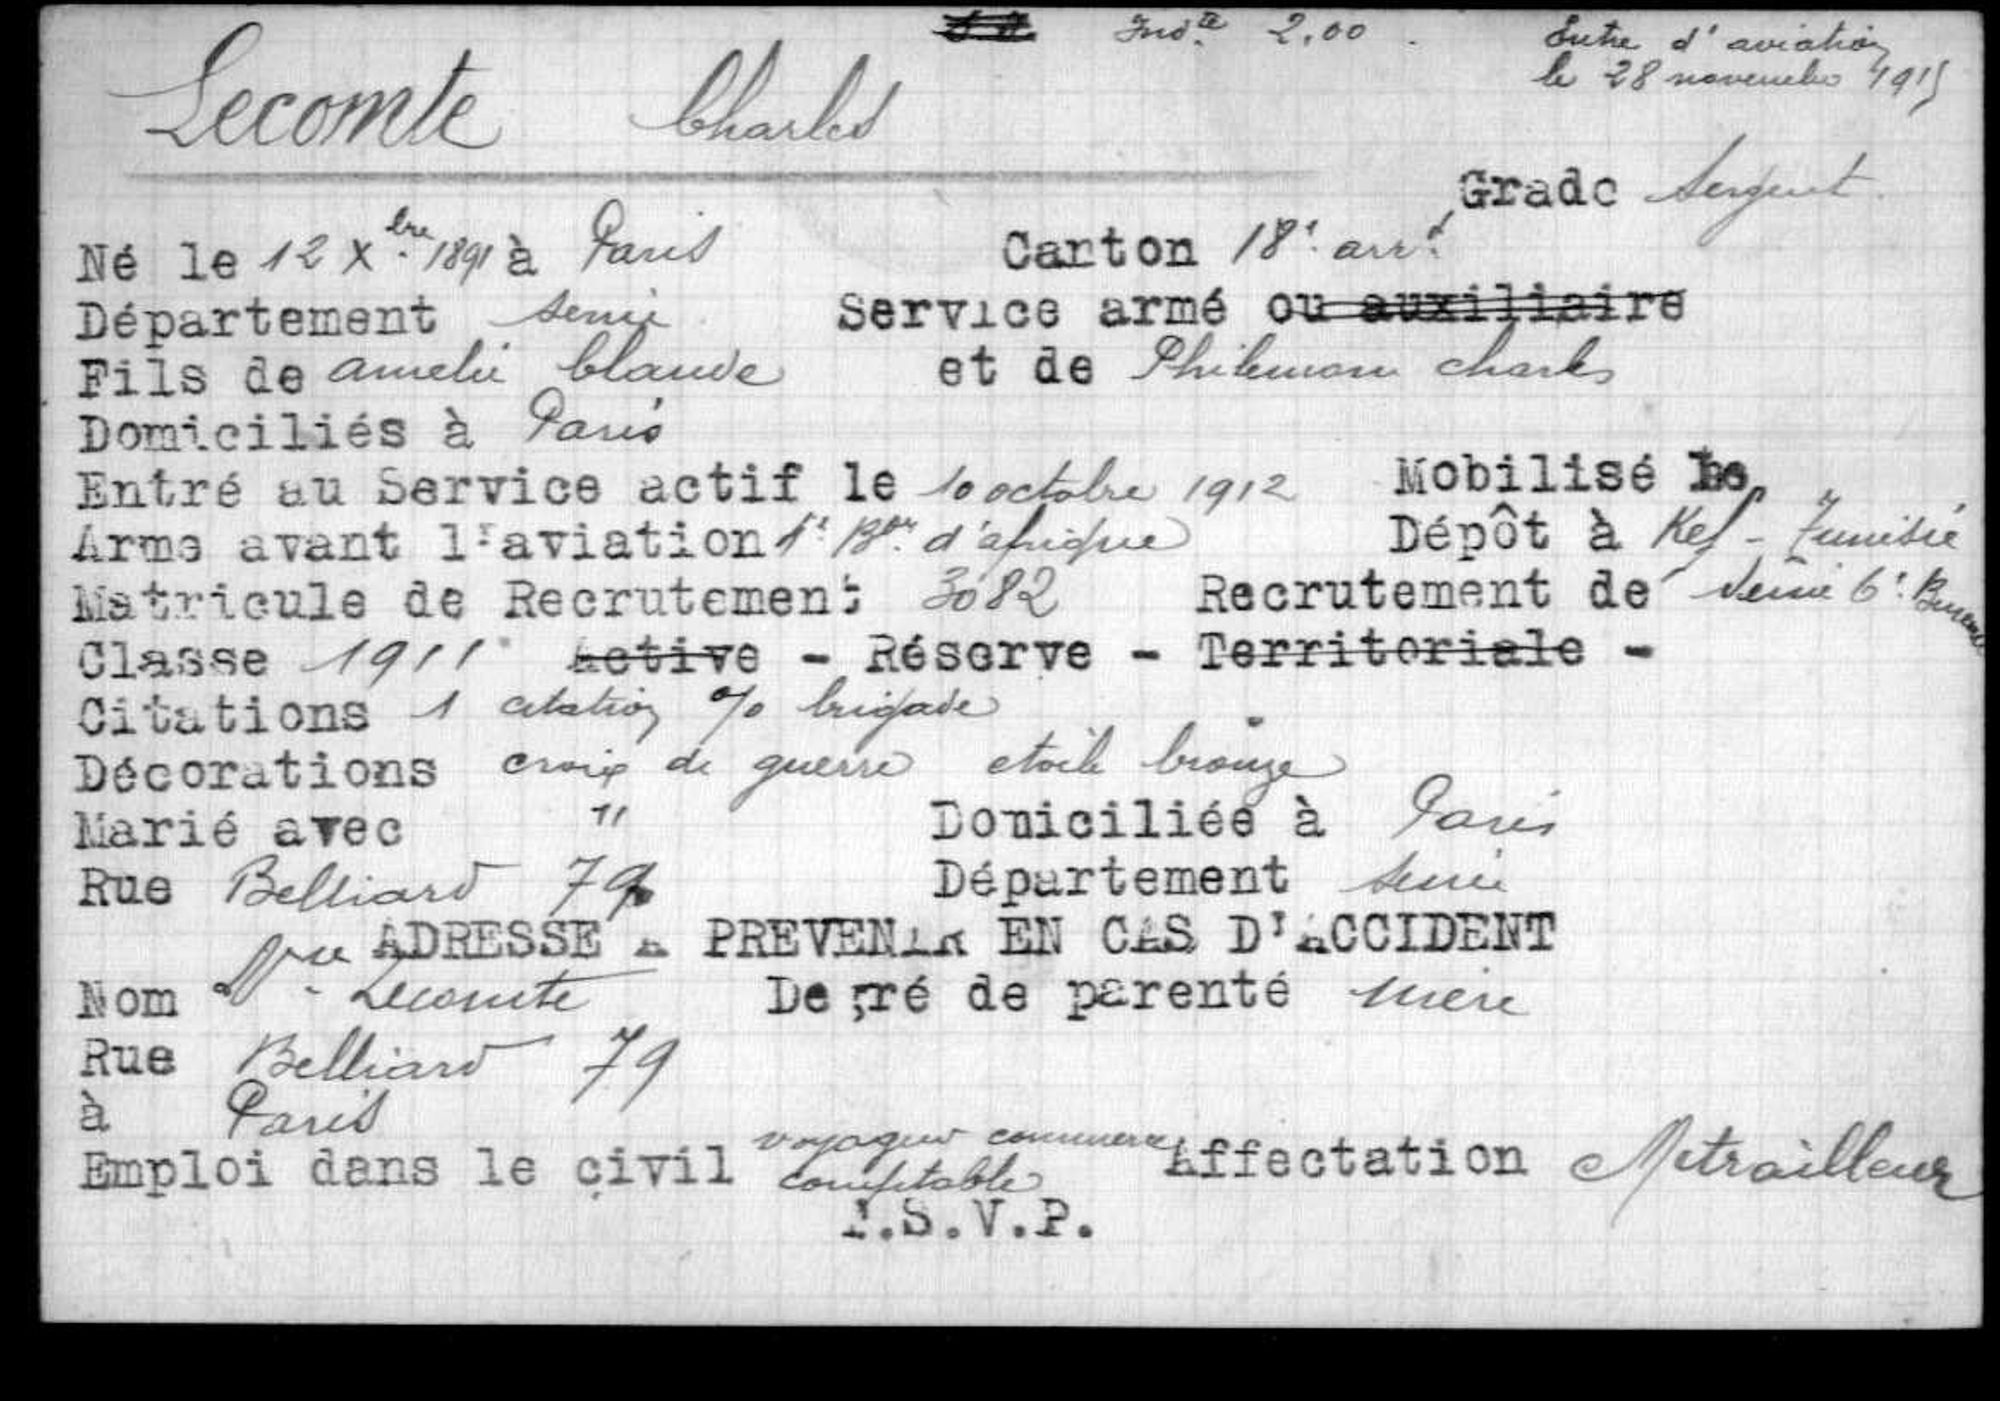 Ind.te 2,00 . Entre d'aviation
le 28 novembre 1915
Lecomte Charles
Grade Sergent
Né le 12 Xbre 1891 à Paris Canton 18e arrt
Département Seine Service armé ou auxiliaire
Fils de Amelie Claude et de Philemon Charles
Domiciliés à Paris
Entré au Service actif le 10 octobre 1912 Mobilisé le
Arme avant l'aviation 1e Bon d'afrique Dépôt à Kef - Tunisie
Matricule de Recrutement 3082 Recrutement de Seine 6e Bureau
Classe 1911 Active - Réserve - Territoriale -
Citations 1 citation o/o brigade
Décorations croix de guerre etoile bronze
Marié avec " Domiciliée à Paris
Rue Belliard 79 Département Seine
ADRESSE A PREVENIR EN CAS D'ACCIDENT
Nom Vve Lecomte Degré de parenté mère
Rue Belliard 79
à Paris
Emploi dans le civil voyageur commerce comptable Affectation Mitrailleur
T.S.V.P.